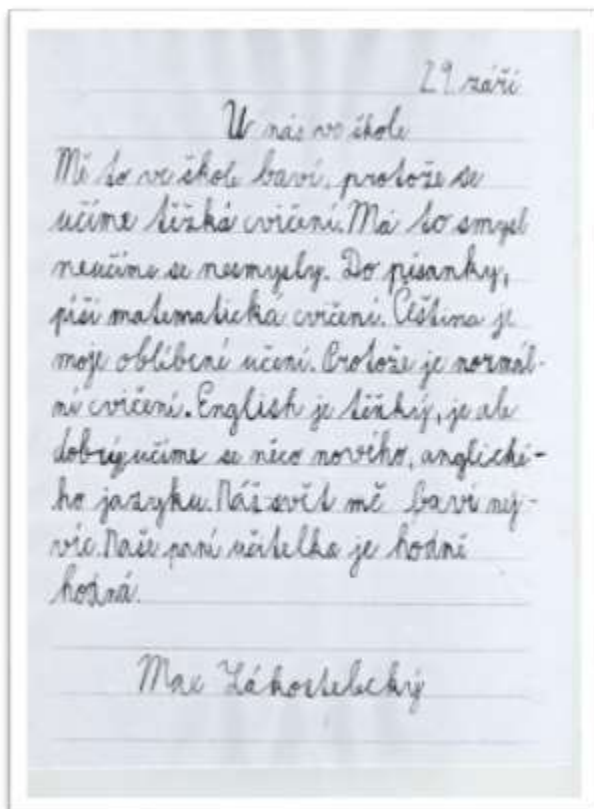 29. září
U nás ve škole
Mě to ve škole baví, protože se
učíme těžká cvičení. Má to smysl
neučíme se nesmysly. Do písanky,
píši matematická cvičení. Čeština je
moje oblíbené učení. Protože je normál-
ní cvičení. English je těžký, je ale
dobrý učíme se něco nového, anglické-
ho jazyku. Náš svět mě baví nej-
víc. Naše paní učitelka je hodně
hodná.
Max Zákostelecký